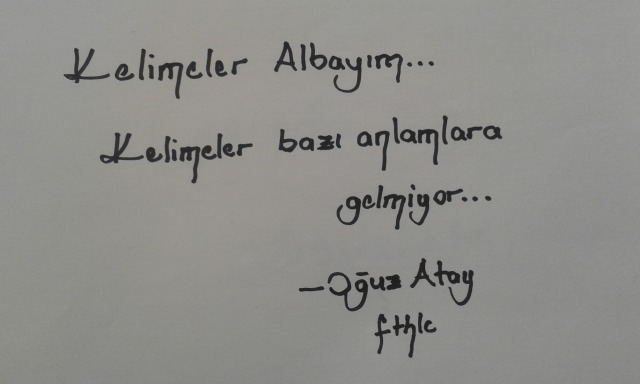 Kelimeler Albayım...
Kelimeler bazı anlamlara
gelmiyor...
-Oğuz Atay
fthlc